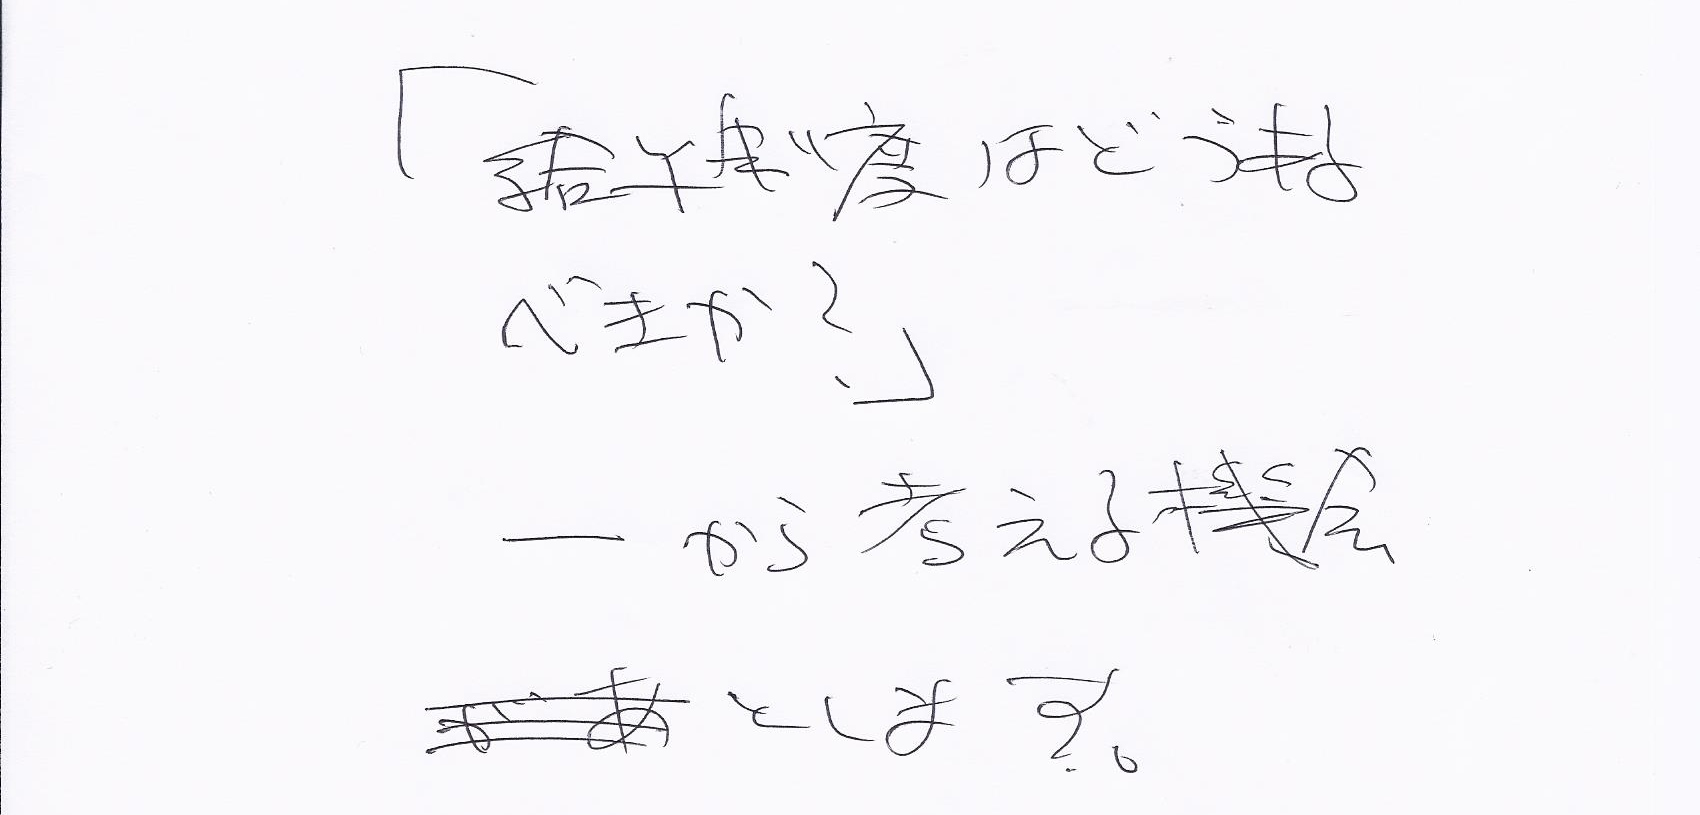 「度はどうある
べきか?」
一から考える機会
とします。